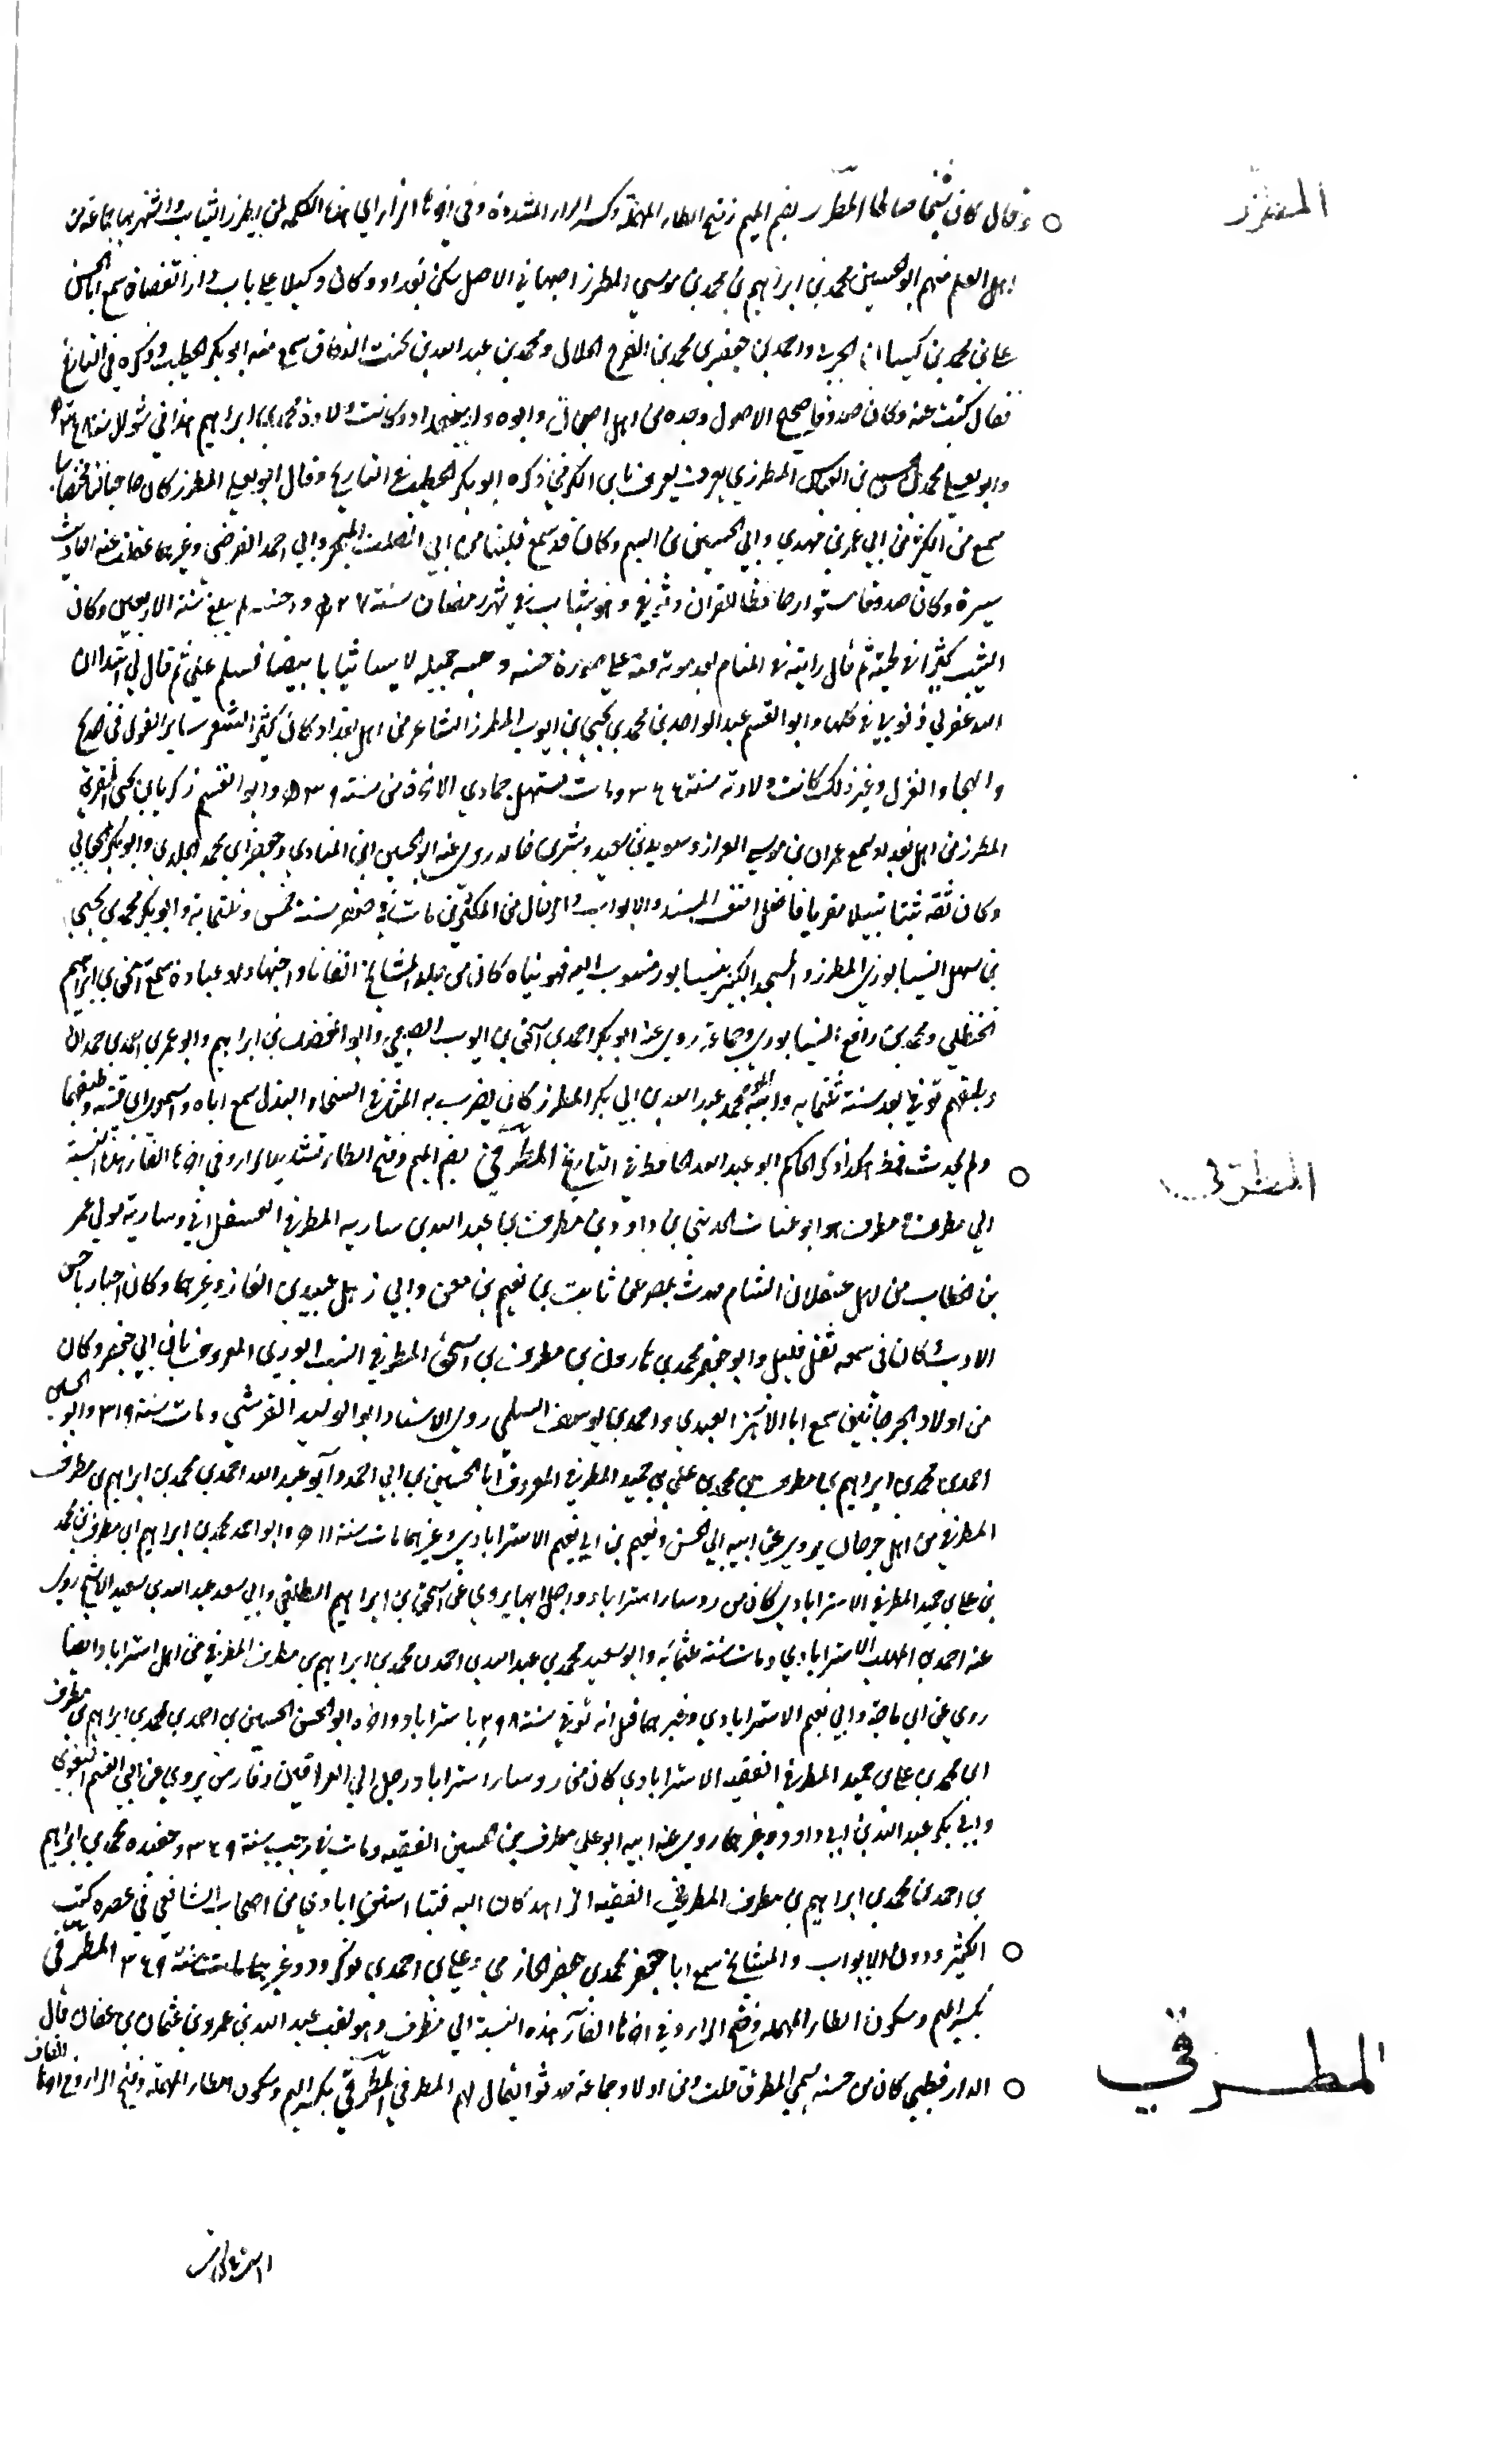 المطرز
وقال كان شيخا صالحا المطرز بضم الميم وفتح الطاء المهملة وكسر الراء المشددة وفي اخرها الزاي هذه الكلمة لمن يطرز الثياب واشتهر بها جماعة من
اهل العلم منهم ابو الحسين محمد بن ابراهيم بن محمد بن موسي المطرز اصبهاني الاصل سكن بغداد وكان وكيلا علي باب دار القضاة سمع ابا الحسن
علي بن محمد بن كيسان الحربي واحمد بن جعفر بن محمد بن الفرج الخلال ومحمد بن عبد الله بن بخيت الدقاق سمع منه ابو بكر الخطيب وذكره في التاريخ
فقال كتبت عنه وكان صدوقا صحيح الاصول وجده من اهل اصبهان وابوه ولد ببغداد وكانت ولادة محمد بن ابراهيم هذا في شوال سنة
وابو يعلي محمد بن الحسين بن المطرزي يعرف بابن الكرخي ذكره ابو بكر الخطيب في التاريخ وقال ابو يعلي المطرز كان صاحبا لنا مختصا بنا
سمع من ابي عمر بن مهدي وابي الحسين بن المتيم وكان قد سمع قبلنا من ابي الصلت المجبر وابي احمد الفرضي وغيرهما علقت عنه احاديث
يسيرة وكان صدوقا مستورا حافظا للقران وتوفي وهو شاب في شهر رمضان سنة ٤٢٧ واحسبه لم يبلغ سنه الاربعين وكان
الشيب كثيرا في لحيته ثم قال رايته في المنام بعد موته علي صورة حسنه وهيئه جميله لابسا ثيابا بيضا فسلم علي ثم قال لي ابتداء ان
الله غفر لي ذنوبي كلها وابو القسم عبد الواحد بن محمد بن يحيي بن ايوب المطرز الشاعر من اهل بغداد كان كثير الشعر ساير القول في المديح
والهجاء والغزل وغير ذلك كانت ولادته سنة ومات مستهل جمادي الاخرة من سنة ٤٣٩ وابو القسم زكريا بن يحيي المقري
المطرز من اهل بغداد سمع عمران بن موسي القزاز وسويد بن سعيد وبشر بن خالد روي عنه ابو الحسين ابن المنادي وجعفر ابن محمد الخلدي وابو بكر الجعابي
وكان ثقة ثبتا نبيلا مقريا فاضلا صنف المسند والابواب والرجال من المكثرين مات في صفر سنة خمس وثلثماية وابو بكر محمد بن يحيي
بن سهل النيسابوري المطرز والمسجد الكبير بنيسابور منسوب اليه فهو بناه كان من جلة المشايخ اتقانا واجتهادا وعبادة سمع اسحق بن ابراهيم
الحنظلي ومحمد بن رافع النيسابوري وجماعة روي عنه ابو بكر احمد بن اسحق بن ايوب الصبغي وابو الفضل بن ابراهيم وابو عمرو احمد بن حمدان
وطبقتهم توفي بعد سنة ثلثمايه وابنه ابو محمد عبد الله بن ابي بكر المطرز كان يضرب به المثل في السخاء والبذل سمع اباه وطبقتهما
المطرفي
ولم يحدث قط هكذا ذكر الحاكم ابو عبد الله الحافظ في التاريخ المطرفي بضم الميم وفتح الطاء وتشديد الراء وفي اخرها الفاء هذه النسبة
الي مطرف مطرف هو ابو عتاب بن داود بن مطرف بن عبد الله بن ساريه المطرفي العسقلاني وسارية مولي عمر
بن خطاب من اهل عسقلان الشام حدث بمصر عن ثابت بن نعيم بن معن وابي زهل عبيد بن الغاز وغيرهما وكان اخباريا حسن
الادب كان في سمعه ثقل قليل وابو جعفر محمد بن هارون بن مطرف بن اسحق المطرفي النيسابوري المعروف بابن ابي جعفر وكان
من اولاد الجرجانيين سمع ابا الازهر العبدي واحمد بن يوسف السلمي روي الاستاد ابو الوليد القرشي ومات سنة ٣١٩ وابو الحسن
احمد بن محمد بن ابراهيم بن مطرف بن محمد بن علي بن حميد المطرفي المعروف ابا الحسين بن ابي احمد وابو عبد الله احمد بن محمد بن ابراهيم بن مطرف
المطرفي من اهل جرجان يروي عن ابيه ابي الحسن ونعيم بن ابي نعيم الاستراباذي وغيرهما مات سنة وابو احمد محمد بن ابراهيم ابن مطرف بن محمد
بن علي بن حميد المطرفي الاستراباذي كان من روساء استراباد يروي عن اسحق بن ابراهيم الطلقي وابي سعد عبد الله بن سعيد الاشج روي
عنه احمد بن المهلب الاستراباذي ومات سنة وابو سعيد محمد بن عبد الله بن احمد بن محمد بن ابراهيم بن مطرف المطرفي من اهل استراباد ايضا
روي عن ابي ماجة وابي نعيم الاستراباذي وغيرهما قيل انه توفي سنة ٣٩٨ باستراباد واخوه ابو الحسن الحسين بن احمد بن محمد بن ابراهيم بن مطرف
ابن محمد بن علي بن حميد المطرفي الفقيه الاستراباذي كان من روساء استراباد رحل الي العراقين وفارس يروي عن ابي القسم البغوي
وابي بكر عبد الله بن ابي داود وغيرهما روي عنه ابنه ابو علي مطرف بن الحسين الفقيه ومات في رجب سنة ٣٤٩ وحفيده محمد بن ابراهيم
بن احمد بن محمد بن ابراهيم بن مطرف المطرفي الفقيه الزاهد كان اليه فتيا استراباد من اصحاب الشافعي في عصره كتب
الكثير ودون الابواب والمشايخ سمع ابا جعفر محمد بن جعفر الحازمي وعلي بن احمد بن وغيرهما مات سنة ٣٤٩ المطرفي
بكسر الميم وسكون الطاء المهملة وفتح الراء وفي اخرها الفاء هذه النسبة الي مطرف وهو لقب عبد الله بن عمرو بن عثمان بن عفان قال
المطرقي
الدارقطني كان من حسنه يسمي المطرف قلت ومن اولاده جماعة حدثوا يقال لهم المطرفي المطرقي بكسر الميم وسكون الطاء المهملة وفتح الراء وفي اخرها القاف